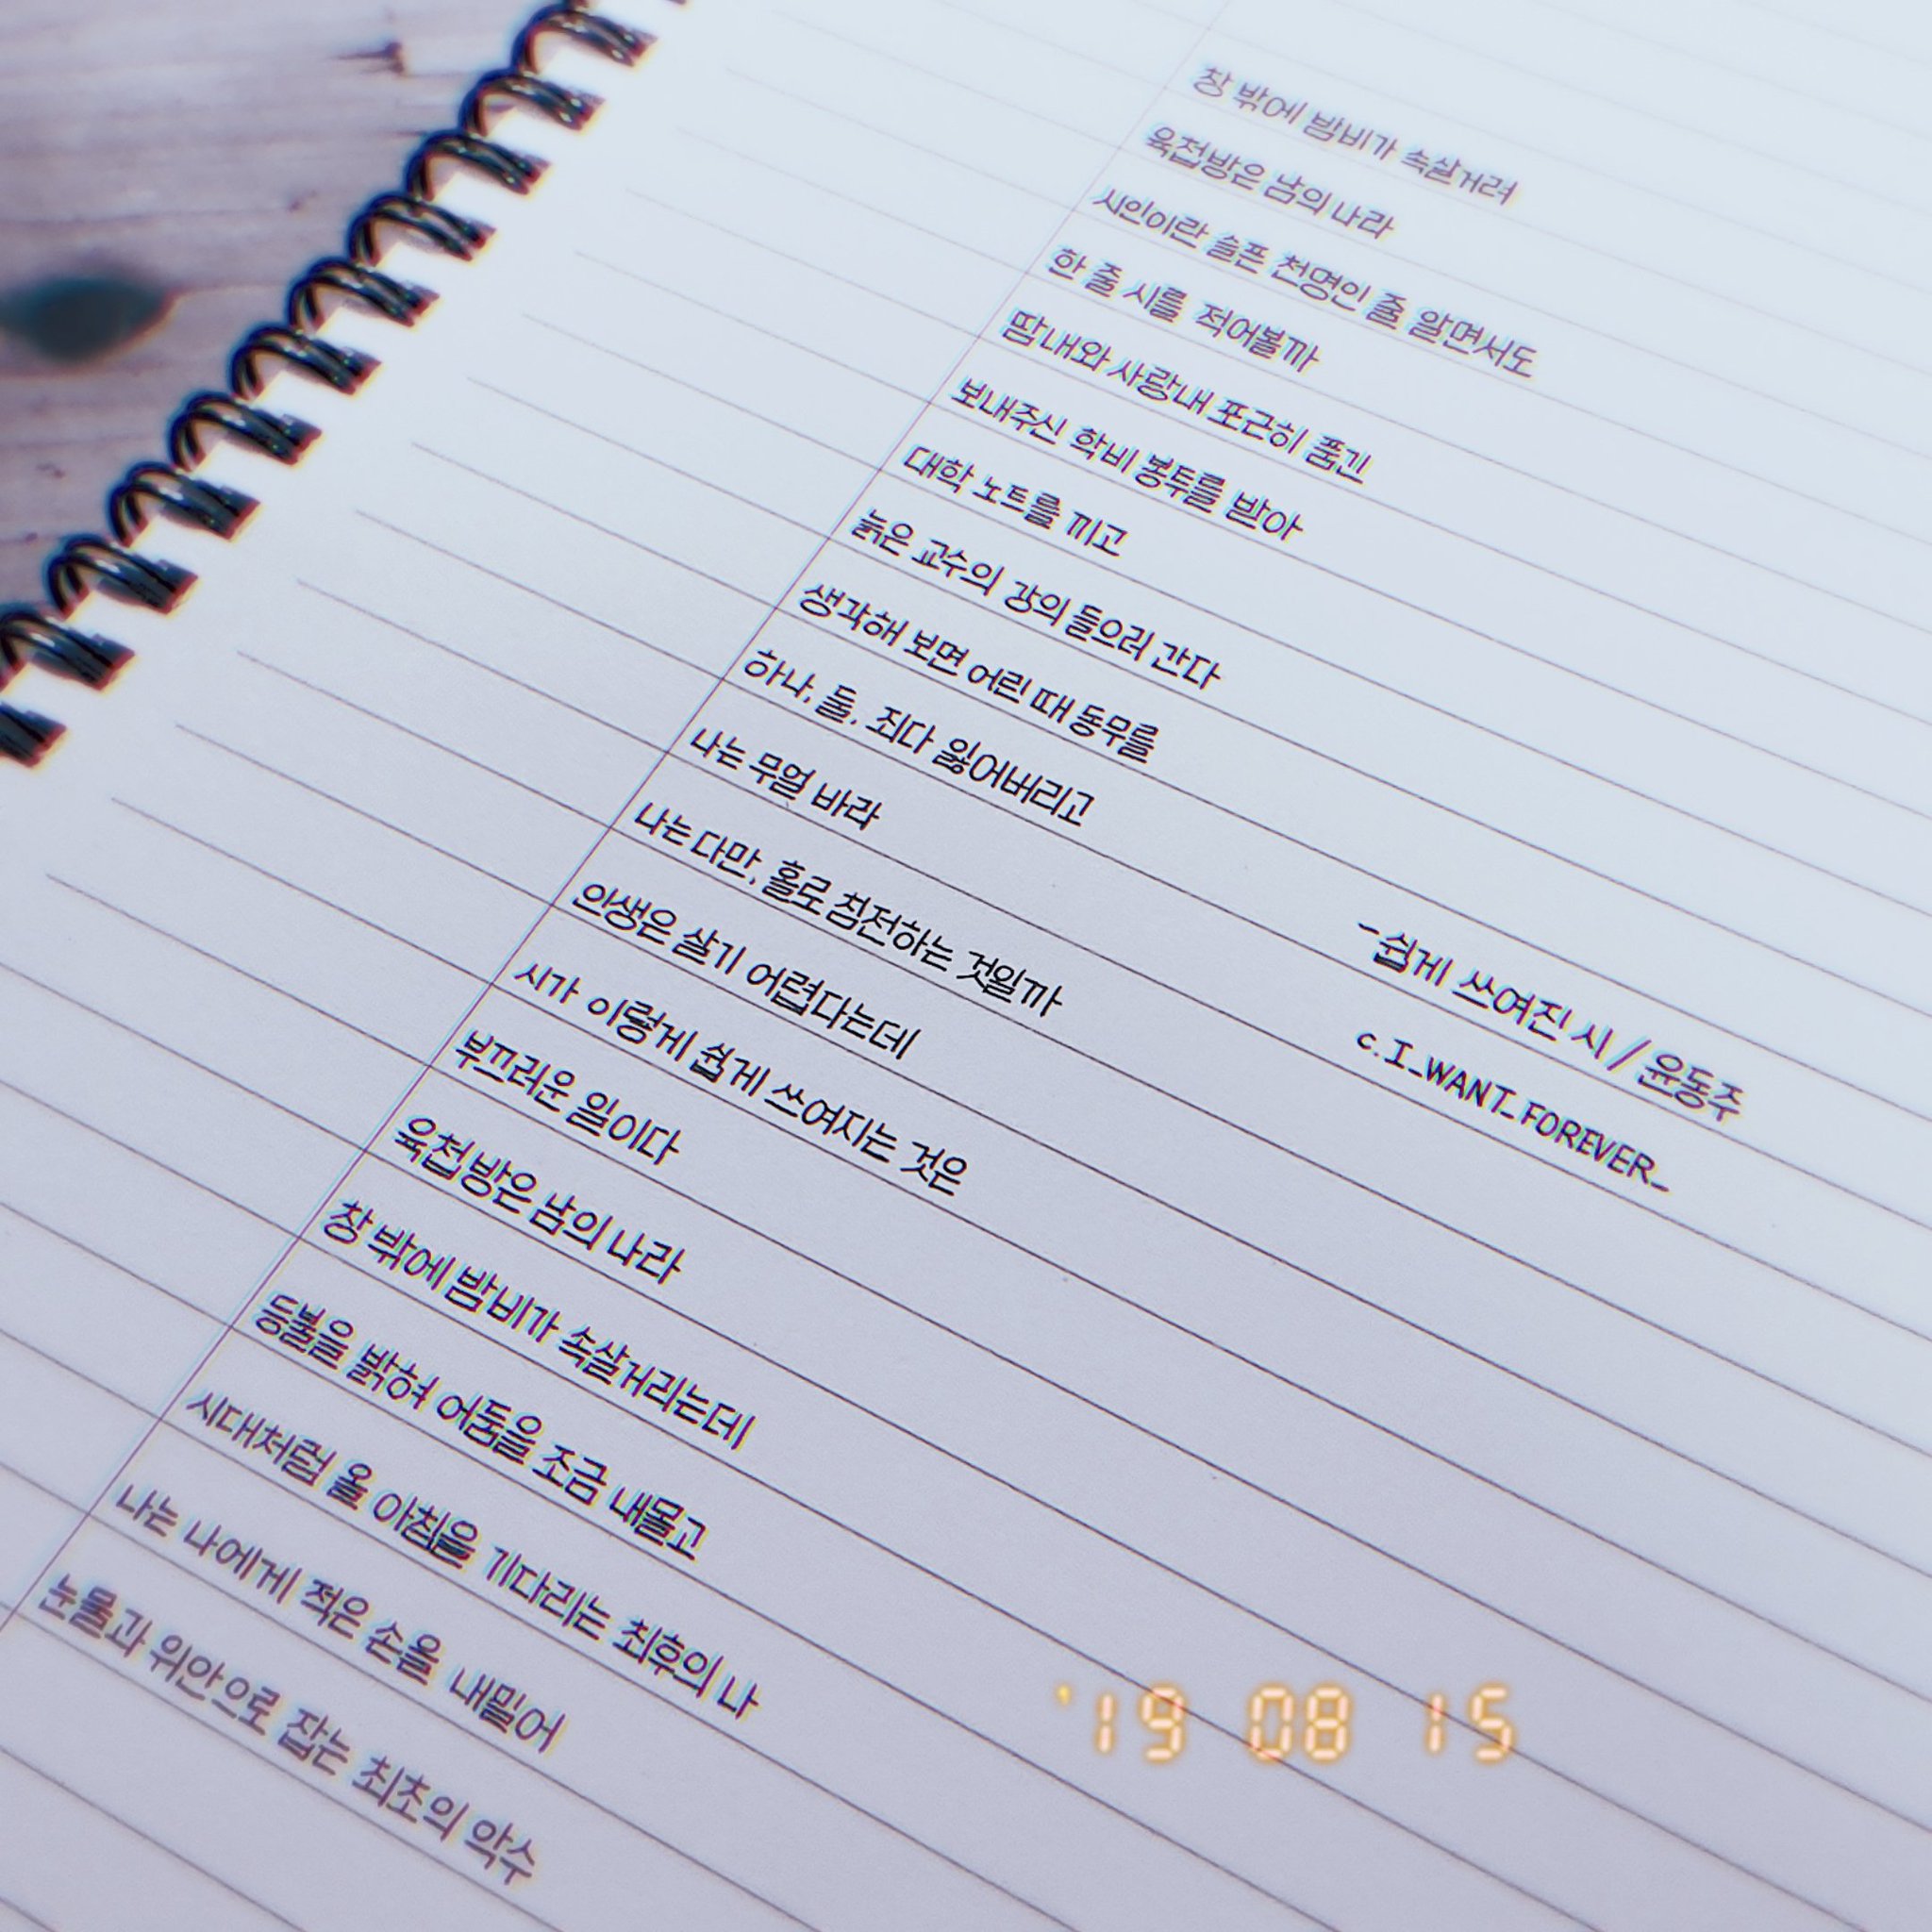 창 밖에 밤비가 속살거려
육첩방은 남의 나라
시인이란 슬픈 천명인 줄 알면서도
한 줄 시를 적어볼까
땀내와 사랑내 포근히 품긴
보내주신 학비 봉투를 받아
대학 노트를 끼고
늙은 교수의 강의 들으러 간다
생각해 보면 어린 때 동무를
하나, 둘, 죄다 잃어버리고
나는 무얼 바라
나는 다만, 홀로 침전하는 것일까
인생은 살기 어렵다는데
시가 이렇게 쉽게 쓰여지는 것은
부끄러운 일이다
육첩방은 남의 나라
창 밖에 밤비가 속살거리는데
등불을 밝혀 어둠을 조금 내몰고
시대처럼 올 아침을 기다리는 최후의 나
나는 나에게 적은 손을 내밀어
눈물과 위안으로 잡는 최초의 악수
-쉽게 쓰여진 시 / 윤동주
c.I_WANT_FOREVER_
'19 08 15